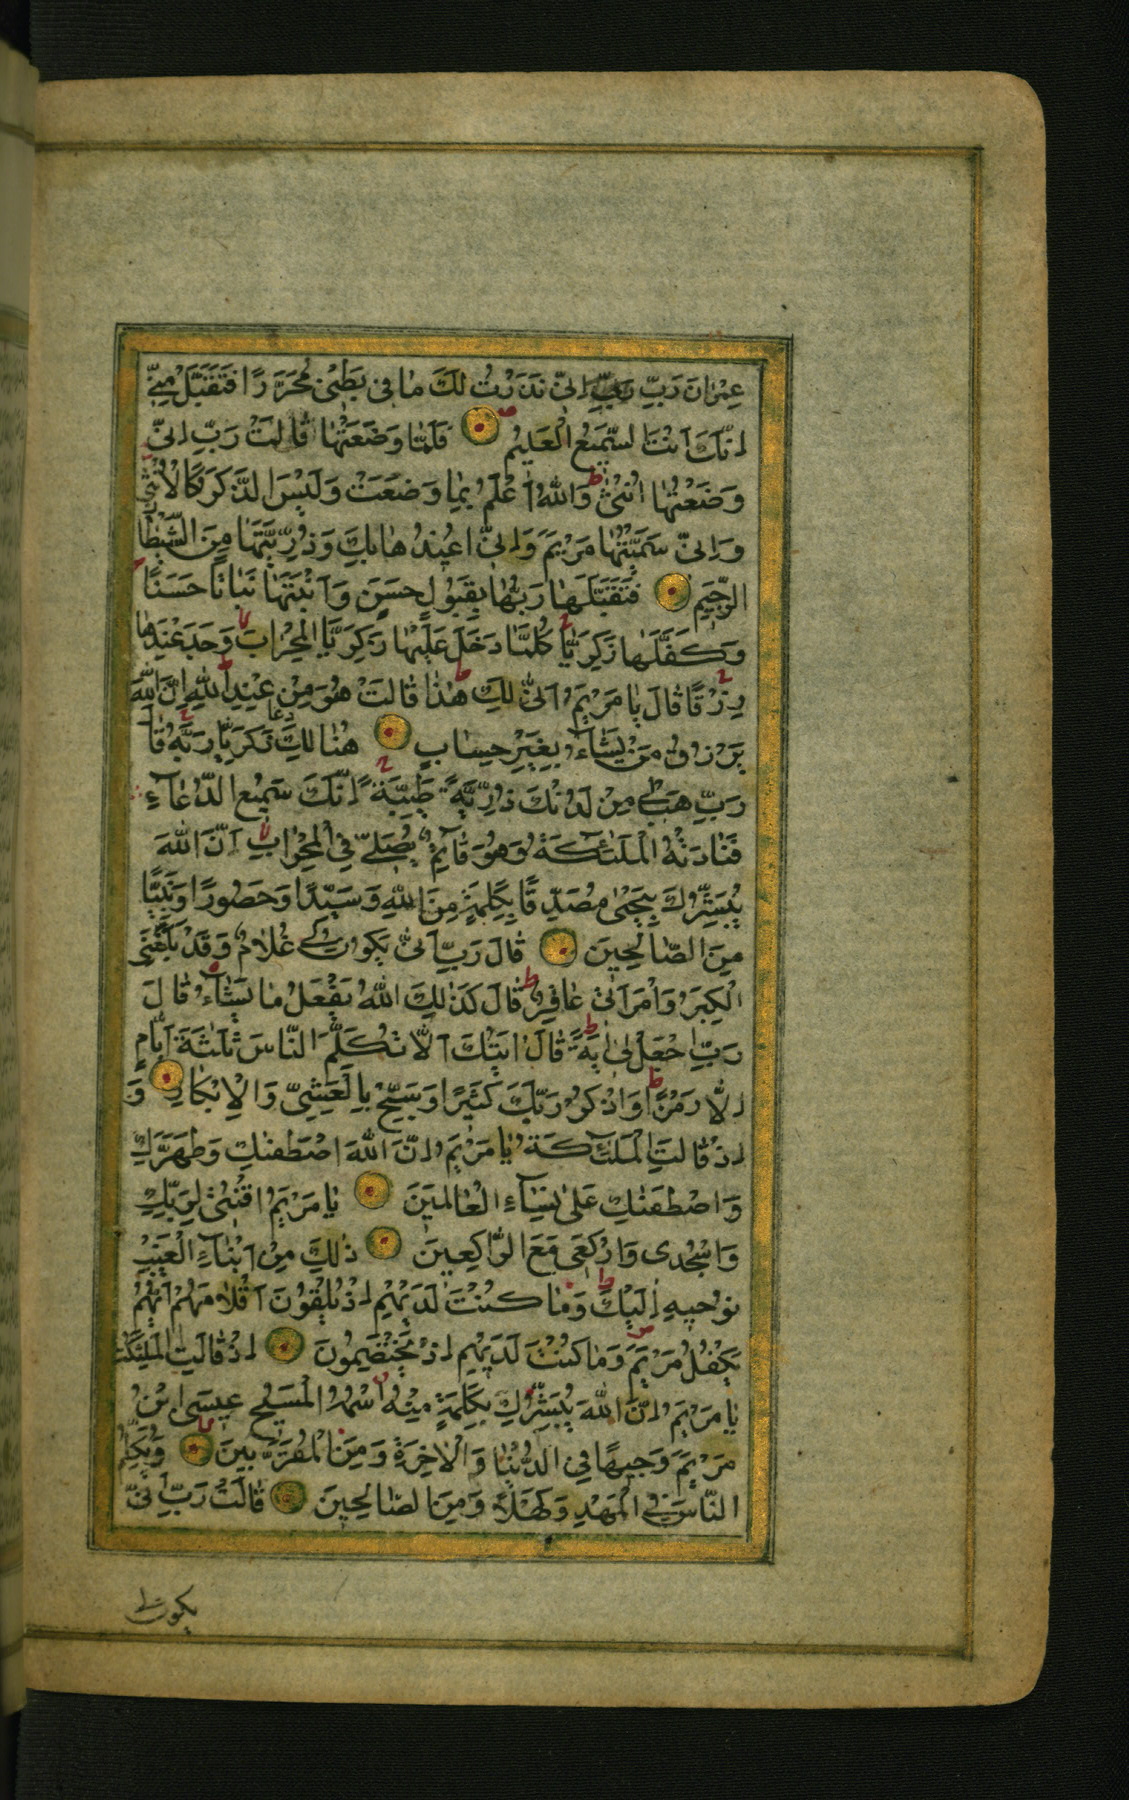 عِمْرٰانَ رَبِّ رَبِّ اِنّٖى نَذَرْتُ لَكَ مٰا فٖى بَطْنٖى مُحَرَّرًا فَتَقَبَّلْ مِنّٖى
اِنَّكَ اَنْتَ السَّمٖيعُ الْعَلٖيمُ فَلَمّٰا وَضَعَتْهٰا قٰالَتْ رَبِّ اِنّٖى
وَضَعْتُهٰا اُنْثىٰ وَاللّٰهُ اَعْلَمُ بِمٰا وَضَعَتْ وَلَيْسَ الذَّكَرُ كَالْاُنْثىٰ
وَاِنّٖى سَمَّيْتُهٰا مَرْيَمَ وَاِنّٖى اُعٖيذُهٰا بِكَ وَذُرِّيَّتَهٰا مِنَ الشَّيْطٰا
الرَّجٖيمِ فَتَقَبَّلَهٰا رَبُّهٰا بِقَبُولٍ حَسَنٍ وَاَنْبَتَهٰا نَبٰاتًا حَسَنًا
وَكَفَّلَهٰا زَكَرِيّٰا كُلَّمٰا دَخَلَ عَلَيْهٰا زَكَرِيَّا الْمِحْرٰابَ وَجَدَ عِنْدَهٰا
رِزْقًا قٰالَ يٰا مَرْيَمُ اَنّٰى لَكِ هٰذٰا قٰالَتْ هُوَ مِنْ عِنْدِ اللّٰهِ اِنَّ اللّٰهَ
يَرْزُقُ مَنْ يَشٰآءُ بِغَيْرِ حِسٰابٍ هُنٰالِكَ دَعٰا زَكَرِيّٰا رَبَّهُ قٰا
رَبِّ هَبْ لٖى مِنْ لَدُنْكَ ذُرِّيَّةً طَيِّبَةً اِنَّكَ سَمٖيعُ الدُّعٰآءِ
فَنٰادَتْهُ الْمَلٰئِكَةُ وَهُوَ قٰآئِمٌ يُصَلّٖى فِى الْمِحْرٰابِ اَنَّ اللّٰهَ
يُبَشِّرُكَ بِيَحْيٰى مُصَدِّقًا بِكَلِمَةٍ مِنَ اللّٰهِ وَسَيِّدًا وَحَصُورًا وَنَبِيًّا
مِنَ الصّٰالِحٖينَ قٰالَ رَبِّ اَنّٰى يَكُونُ لٖى غُلٰامٌ وَقَدْ بَلَغَنِىَ
الْكِبَرُ وَامْرَاَتٖى عٰاقِرٌ قٰالَ كَذٰلِكَ اللّٰهُ يَفْعَلُ مٰا يَشٰآءُ قٰالَ
رَبِّ اجْعَلْ لٖى اٰيَةً قٰالَ اٰيَتُكَ اَلّٰا تُكَلِّمَ النّٰاسَ ثَلٰثَةَ اَيّٰامٍ
اِلّٰا رَمْزًا وَاذْكُرْ رَبَّكَ كَثٖيرًا وَسَبِّحْ بِالْعَشِىِّ وَالْاِبْكٰارِ وَ
اِذْ قٰالَتِ الْمَلٰئِكَةُ يٰا مَرْيَمُ اِنَّ اللّٰهَ اصْطَفٰىكِ وَطَهَّرَكِ
وَاصْطَفٰىكِ عَلٰى نِسٰآءِ الْعٰالَمٖينَ يٰا مَرْيَمُ اقْنُتٖى لِرَبِّكِ
وَاسْجُدٖى وَارْكَعٖى مَعَ الرّٰاكِعٖينَ ذٰلِكَ مِنْ اَنْبٰآءِ الْغَيْبِ
نُوحٖيهِ اِلَيْكَ وَمٰا كُنْتَ لَدَيْهِمْ اِذْ يُلْقُونَ اَقْلٰامَهُمْ اَيُّهُمْ
يَكْفُلُ مَرْيَمَ وَمٰا كُنْتَ لَدَيْهِمْ اِذْ يَخْتَصِمُونَ اِذْ قٰالَتِ الْمَلٰئِكَةُ
يٰا مَرْيَمُ اِنَّ اللّٰهَ يُبَشِّرُكِ بِكَلِمَةٍ مِنْهُ اسْمُهُ الْمَسٖيحُ عٖيسَى ابْنُ
مَرْيَمَ وَجٖيهًا فِى الدُّنْيٰا وَالْاٰخِرَةِ وَمِنَ الْمُقَرَّبٖينَ وَيُكَلِّمُ
النّٰاسَ فِى الْمَهْدِ وَكَهْلًا وَمِنَ الصّٰالِحٖينَ قٰالَتْ رَبِّ اَنّٰى
يكون لى